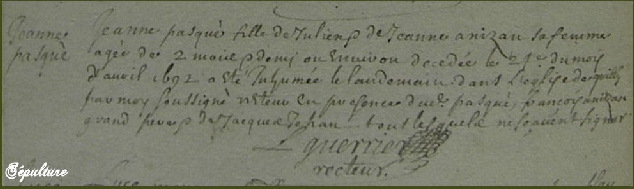 Jeanne pasqué
Jeanne pasqué fille de Julien & de Jeanne anizau sa femme
agée de 2 mois & demi ou Environ decedée le 21e du mois
d'avril 1692 a eté Inhumée le landemain dans L'eglise de quilly
par moy soussigné recteur En presence de pasqué, francois anizau
grand pere & de Jacques tous lesquels ne sçavent signer
guerrier
recteur.
Sépulture